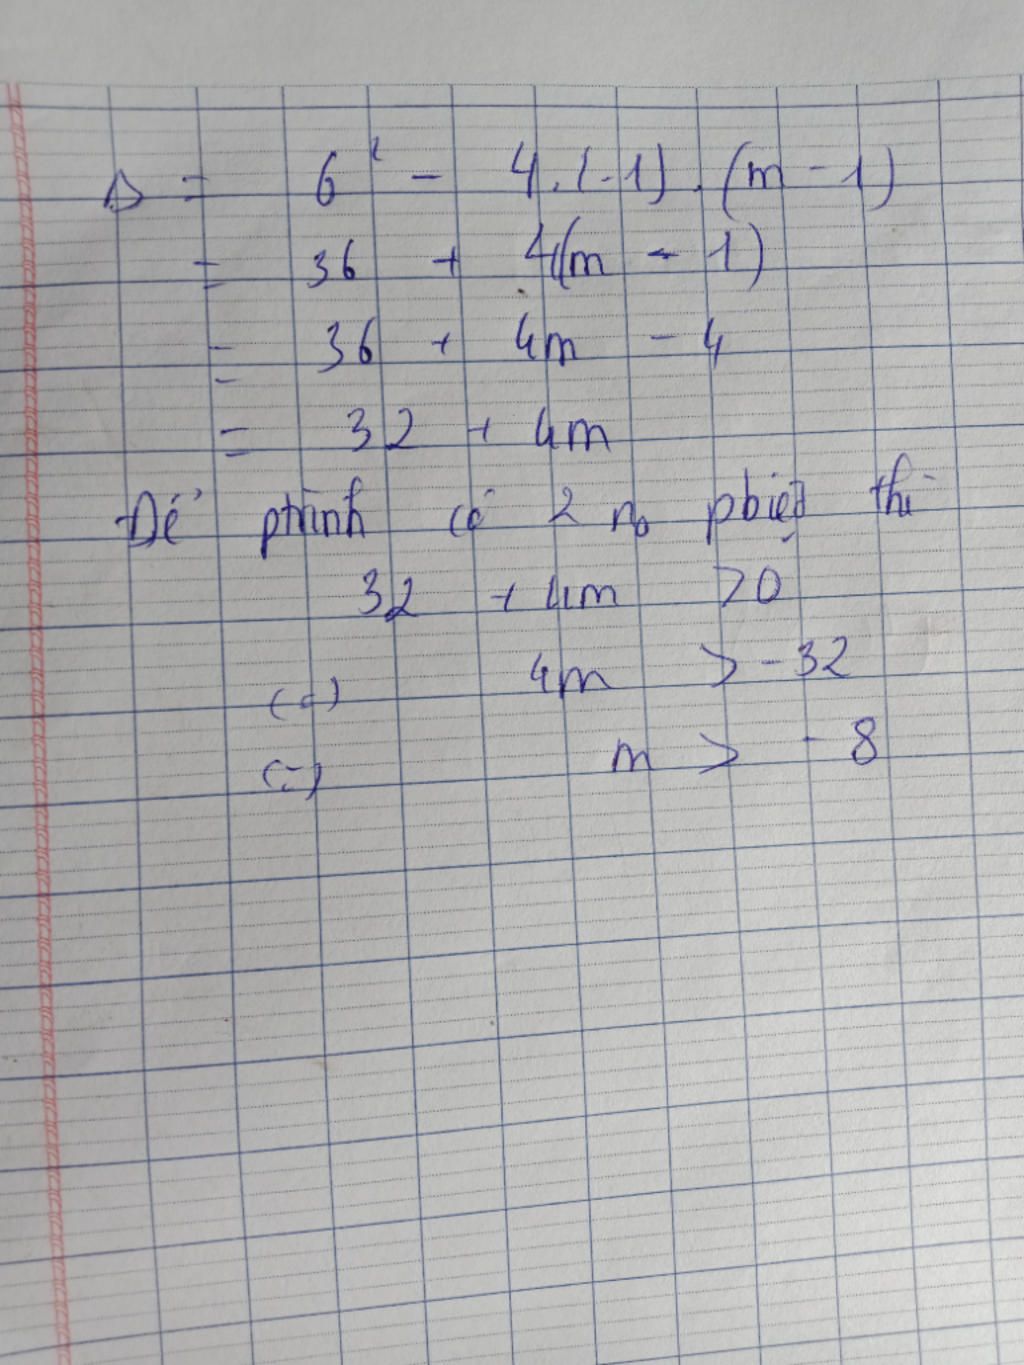 Δ = 6² - 4.(-1).(m - 1)
= 36 + 4(m - 1)
= 36 + 4m - 4
= 32 + 4m
Để ptrình có 2 no pbiệt thì
32 + 4m >0
(=) 4m > -32
(=) m > -8